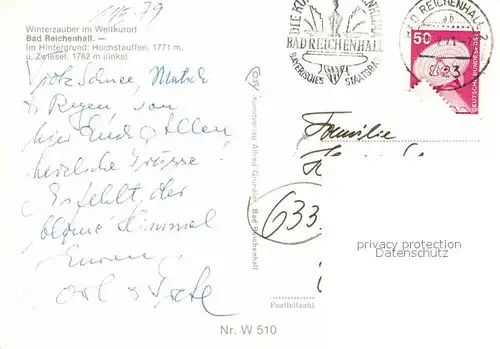 1 1 5. 79
Winterzauber im Weltkurort
Bad Reichenhall. —
Im Hintergrund: Hochstauffen, 1771 m,
u. Zwiesel, 1782 m (links)
Trotz Schnee, Matsch
& Regen, von
hier Euch Allen
herzliche Grüsse!
Es fehlt der
blaue Himmel
Euren
COSY Kunstverlag Alfred Gründler, Bad Reichenhall
BAD REICHENHALL
BAYERISCHES STAATSBAD
BAD REICHENHALL 2
23
50
DEUTSCHE BUNDESPOST
Familie
633
privacy protection
Datenschutz
Postleitzahl
Nr. W 510